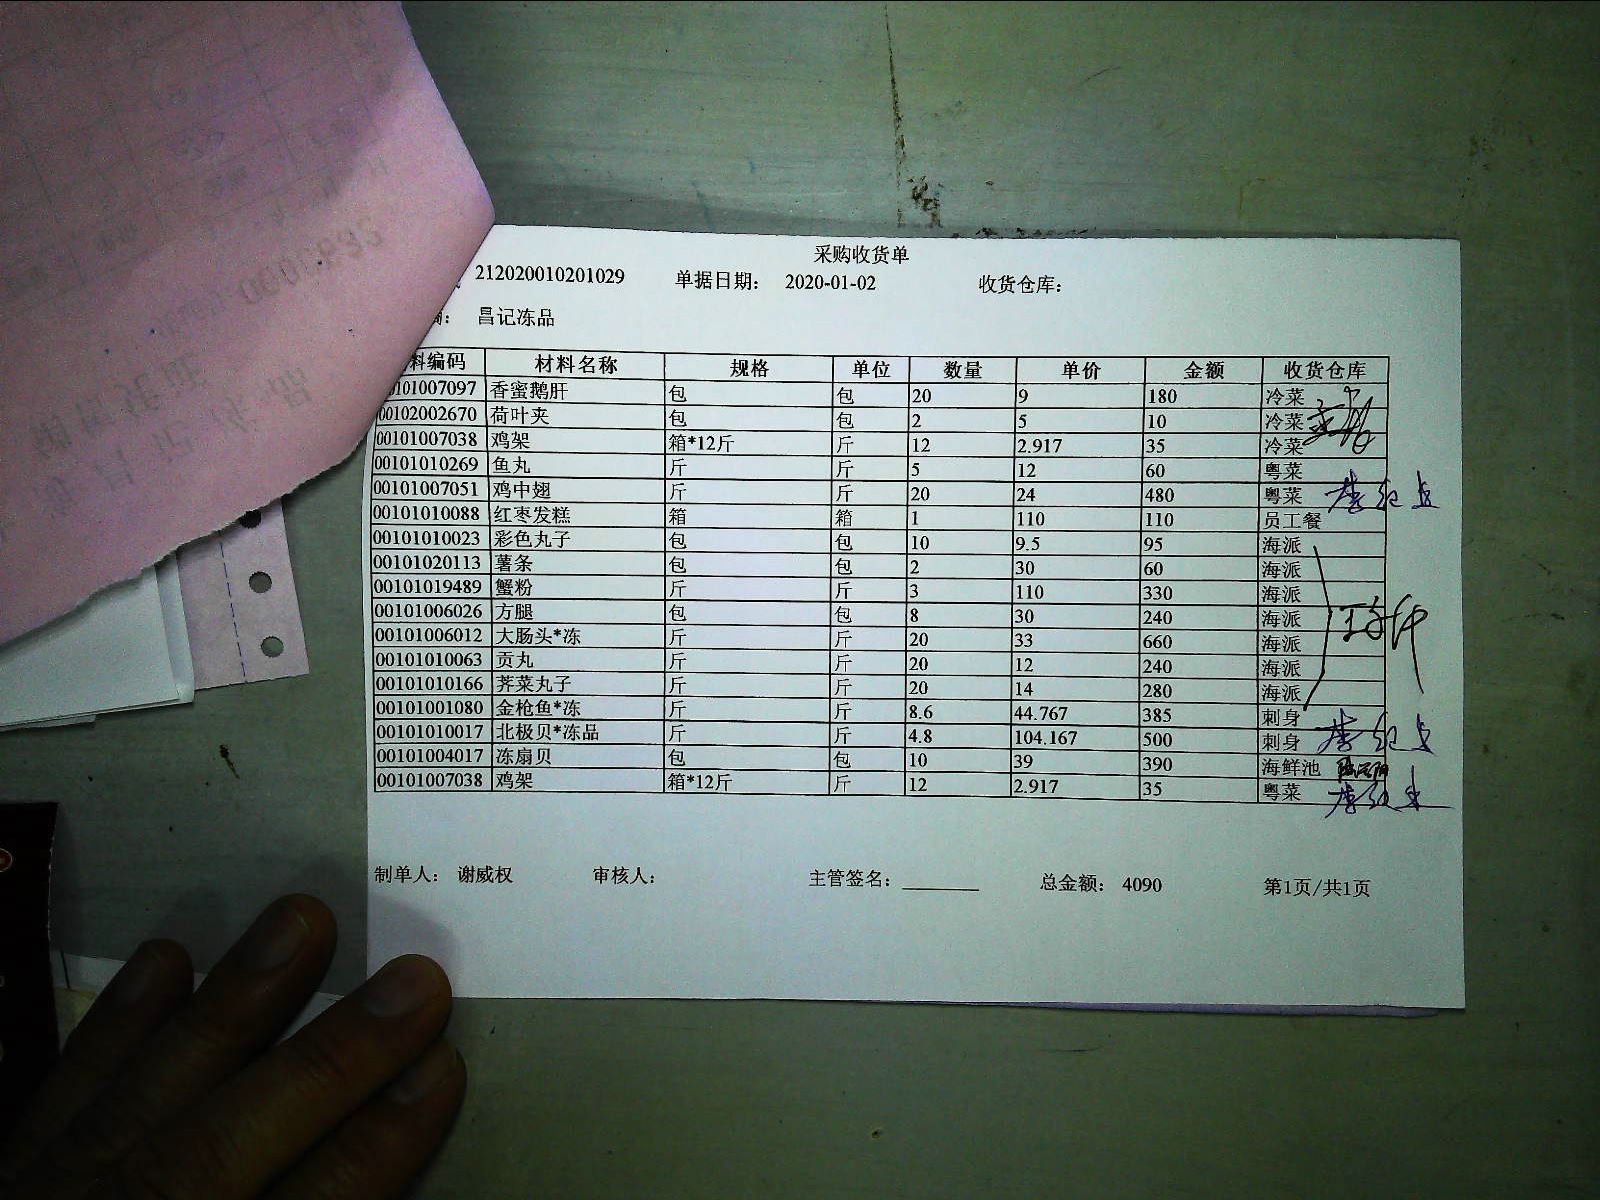 采购收货单
212020010201029 单据日期： 2020-01-02 收货仓库：
商： 昌记冻品
料编码 材料名称 规格 单位 数量 单价 金额 收货仓库
00101007097 香蜜鹅肝 包 包 20 9 180 冷菜
00102002670 荷叶夹 包 包 2 5 10 冷菜
00101007038 鸡架 箱*12斤 斤 12 2.917 35 冷菜
00101010269 鱼丸 斤 斤 5 12 60 粤菜
00101007051 鸡中翅 斤 斤 20 24 480 粤菜
00101010088 红枣发糕 箱 箱 1 110 110 员工餐
00101010023 彩色丸子 包 包 10 9.5 95 海派
00101020113 薯条 包 包 2 30 60 海派
00101019489 蟹粉 斤 斤 3 110 330 海派
00101006026 方腿 包 包 8 30 240 海派
00101006012 大肠头*冻 斤 斤 20 33 660 海派
00101010063 贡丸 斤 斤 20 12 240 海派
00101010166 荠菜丸子 斤 斤 20 14 280 海派
00101001080 金枪鱼*冻 斤 斤 8.6 44.767 385 刺身
00101010017 北极贝*冻品 斤 斤 4.8 104.167 500 刺身
00101004017 冻扇贝 包 包 10 39 390 海鲜池
00101007038 鸡架 箱*12斤 斤 12 2.917 35 粤菜
制单人： 谢威权 审核人： 主管签名：________ 总金额： 4090 第1页/共1页